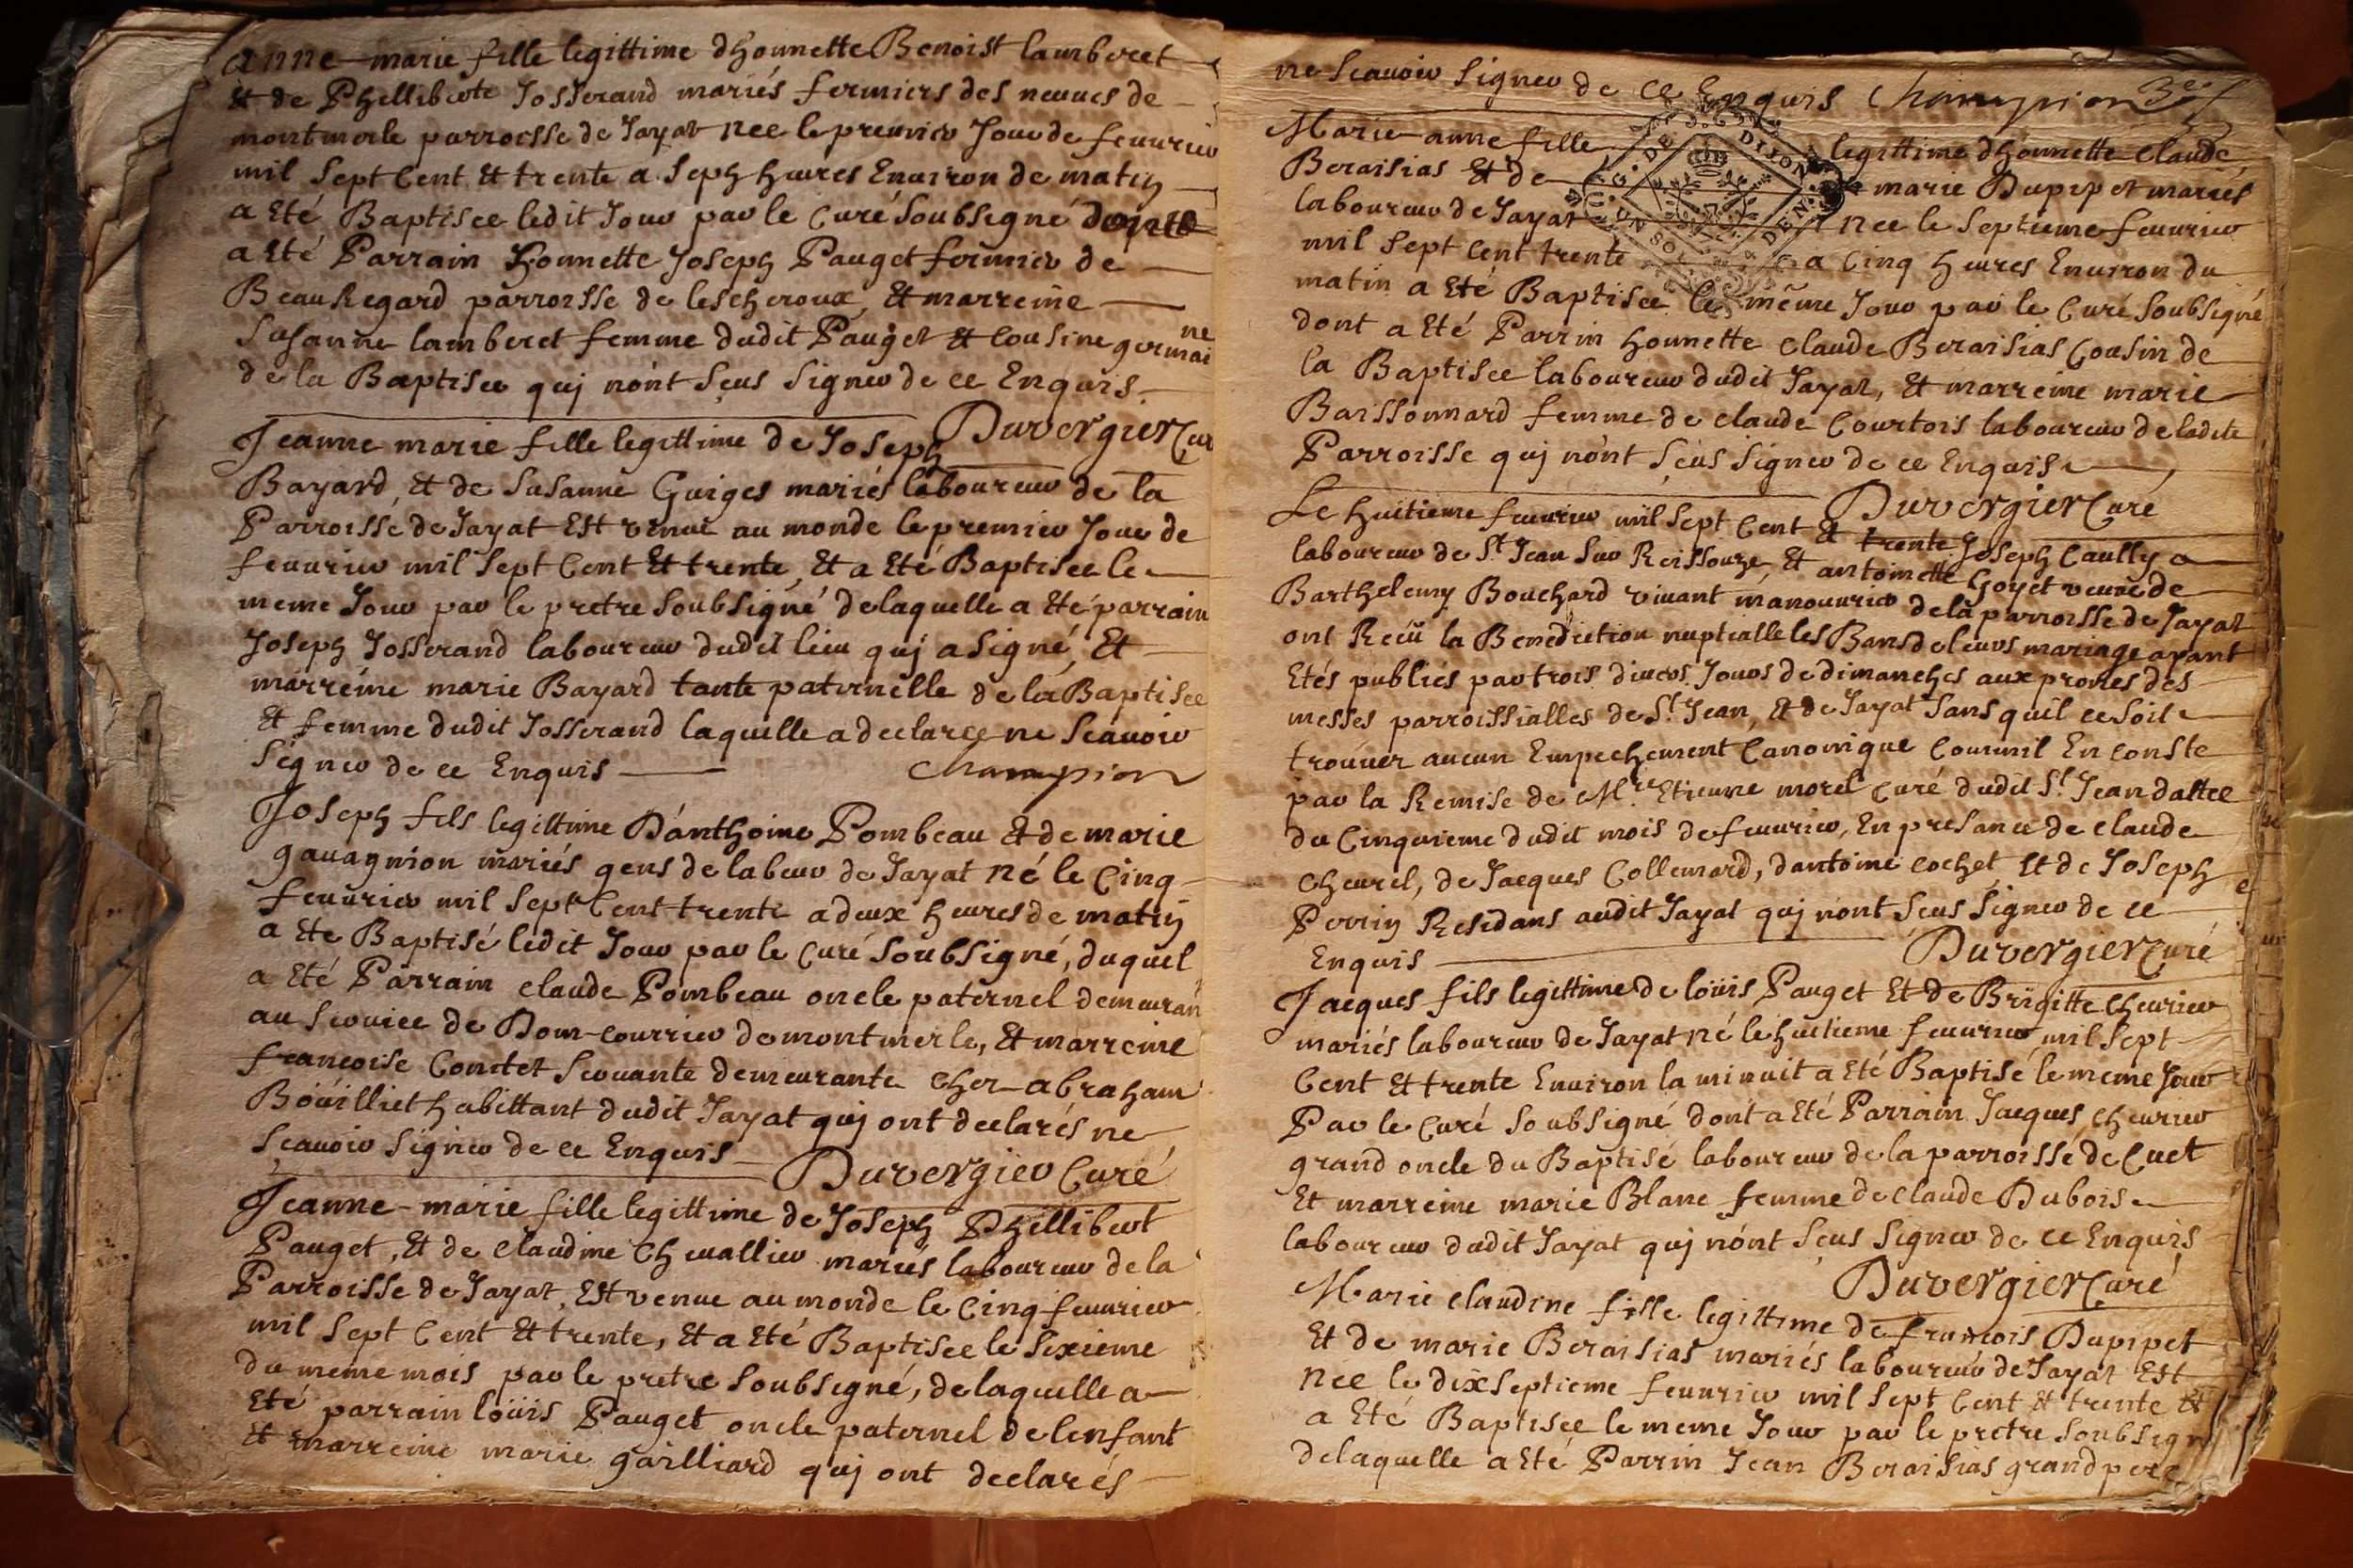 Anne-marie fille legittime dhonnette Benoist lamberet
Et de Phelliberte Josserand mariés fermiers des neuues de
montmerle parroisse de Jayat nee le premier Jour de feuurier
mil sept Cent Et trente a seph heures Enuiron de matin
a Eté Baptisee ledit Jour par le Curé soubsigné dont
a Eté Parrain honnette Joseph Pauget fermier de
BeauRegard parroisse de lescheroux, Et marreine
Susanne lamberet femme dudit Pauget Et Cousine germaine
de la Baptisee quj nont sçus signer de ce Enquis.
Duvergier Cur
Jeanne marie fille legittime de Joseph
Bayard, Et de Susanne Guiges mariés laboureur de la
Parroisse de Jayat Est venue au monde le premier Jour de
feuurier mil sept Cent Et trente, Et a Eté Baptisee le
meme Jour par le pretre soubsigné de laquelle a Eté parrain
Joseph Josserand laboureur dudit lieu quj a signé, Et
marreine marie Bayard tante paternelle de la Baptisee
Et femme dudit Josserand laquelle a declaree ne scauoir
signer de ce Enquis Champion
Joseph fils legittime D'anthoine Pombeau Et de marie
gauagnion mariés gens de labeur de Jayat né le Cinq
feuurier mil sept Cent trente a deux heures de matin
a Ete Baptisé ledit Jour par le Curé soubsigné, duquel
a Eté Parrain claude Pombeau oncle paternel demeuran
au seruice de Dom-courrier de montmerle, Et marreine
francoise Contet seruante demeurante cher abraham
Boüilliet habittant dudit Jayat quj ont declarés ne
scauoir signer de ce Enquis
Duvergier Curé
Jeanne-marie fille legittime de Joseph Phillibert
Pauget, Et de claudine cheuallier mariés laboureur de la
Parroisse de Jayat, Est venue au monde le Cinq feuurier
mil sept Cent Et trente, Et a Eté Baptisee le sixieme
du meme mois par le pretre soubsigné, de laquelle a
Eté parrain loüis Pauget oncle paternel de lenfant
Et marreine marie gailliard quj ont declarés
ne scauoir signer de ce Enquis Champion
Marie anne fille legittime dhonnette claude
Beraisias Et de marie Dupipet mariés
laboureur de Jayat nee le septieme feuurier
mil sept Cent trente a Cinq heures Enuiron du
matin a Eté Baptisee le même Jour par le Curé soubsigné
dont a Eté Parrin honnette claude Beraisias Cousin de
la Baptisee laboureur dudit Jayat, Et marreine marie
Baissonnard femme de claude Courtois laboureur de ladite
Parroisse quj nont sçus signer de ce Enquis
Duvergier Curé
G. DE DIJON
UN SOL
DEN.
Le huitieme feuurier mil sept Cent Et trente Joseph Caully
laboureur de St Jean sur Reissouze, Et antoinette Goyet veuue de
Barthelemy Bouchard viuant manouurier de la parroisse de Jayat
ont Reçu la Benediction nuptialle les Bans de leurs mariage ayant
Etés publiés par trois diuers Jours de dimanches aux prones des
messes parroissialles de St Jean, Et de Jayat sans quil ce soit
trouuer aucun Empechement Canonique Commil En conste
par la Remise de Mre Etienne morel curé dudit St Jean dattee
du Cinquieme dudit mois de feuurier, En presance de claude
cheurel, de Jacques Collemard, dantoine cochet Et de Joseph
Perrin Residans audit Jayat quj nont sçus signer de ce
Enquis
Duvergier Curé
Jacques fils legittime de loüis Pauget Et de Brigitte cheurier
mariés laboureur de Jayat né le huitieme feuurier mil sept
Cent Et trente Enuiron la minuit a Eté Baptisé le meme Jour
Par le Curé soubsigné dont a Eté Parrain Jacques cheurier
grand oncle du Baptisé laboureur de la parroisse de Cuet
Et marreine marie Blanc femme de claude Dubois
laboureur dudit Jayat quj nont sçus signer de ce Enquis
Duvergier Curé
Marie claudine fille legittime de francois Dupipet
Et de marie Beraisias mariés laboureur de Jayat Est
nee le dixseptieme feuurier mil sept Cent Et trente Et
a Eté Baptisee le meme Jour par le pretre soubsign
delaquelle a Eté Parrin Jean Beraisias grand pere